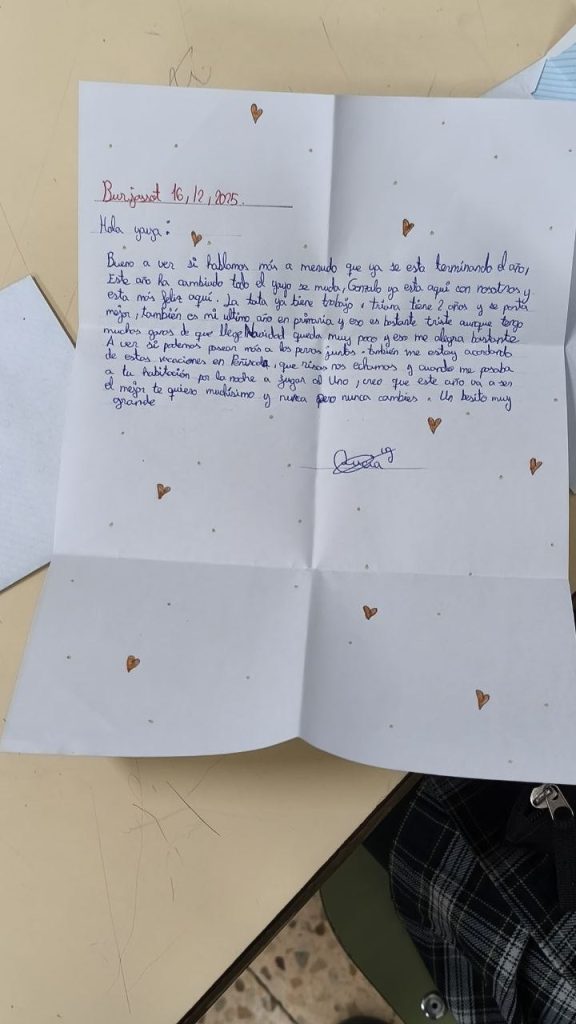 Burjassot 16/12/2025.
Hola yaya:
Bueno a ver si hablamos más a menudo que ya se esta terminando el año,
Este año ha cambiado todo el yayo se muda, Gonzalo ya esta aquí con nosotros y
esta más feliz aquí. La tata ya tiene trabajo, triana tiene 2 años y se porta
mejor, también es mi último año en primaria y eso es bastante triste aunque tengo
muchas ganas de que llege Navidad queda muy poco y eso me alegra bastante.
A ver si podemos pasear más a los perros juntos. también me estoy acordando
de estas vacaciones en Peñíscola, que risas nos echamos y cuando me pasaba
a tu habitación por la noche a jugar al Uno, creo que este año va a ser
el mejor te quiero muchísimo y nunca pero nunca cambies. Un besito muy
grande
Lucía